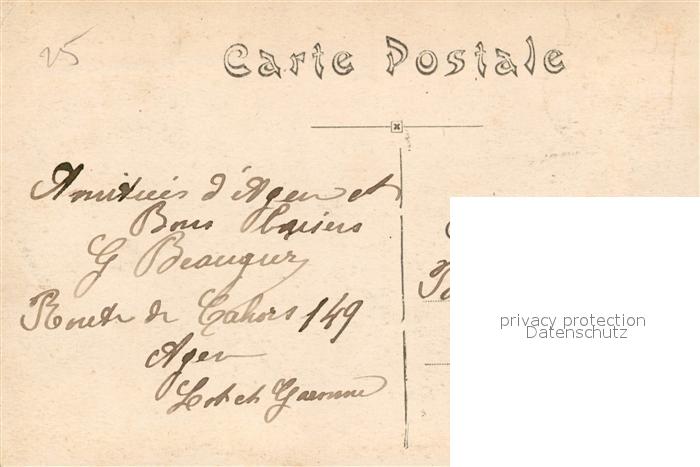 25
Carte Postale
Amitiés d'Agen et
Bons Baisers
G Beauguz
Route de Cahors 149
Agen
Lot et Garonne
privacy protection
Datenschutz